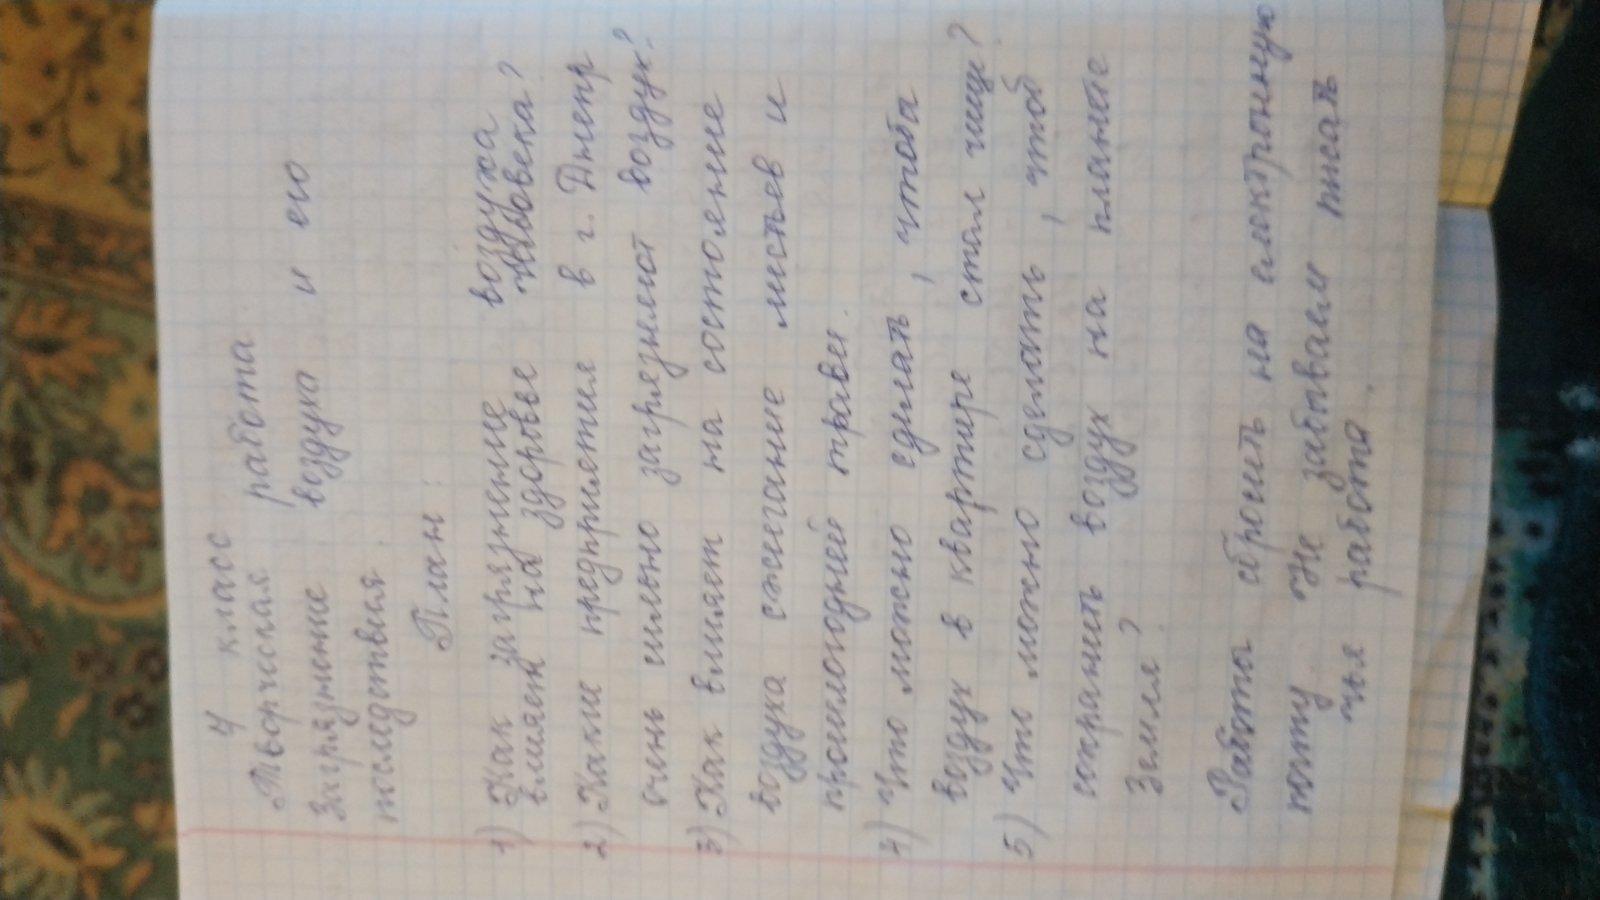 4 класс
Творческая работа
Загрязнение воздуха и его
последствия
План:
1) Как загрязнение воздуха
влияет на здоровье человека?
2) Какие предприятия в г. Днепр
очень сильно загрязняют воздух?
3) Как влияет на состояние
воздуха сжигание листьев и
прошлогодней травы.
4) Что можно сделать, чтобы
воздух в квартире стал чище?
5) Что можно сделать, чтоб
сохранить воздух на планете
Земля?
Работы сбросить на електронную
почту. Не забываем писать
чья работа.